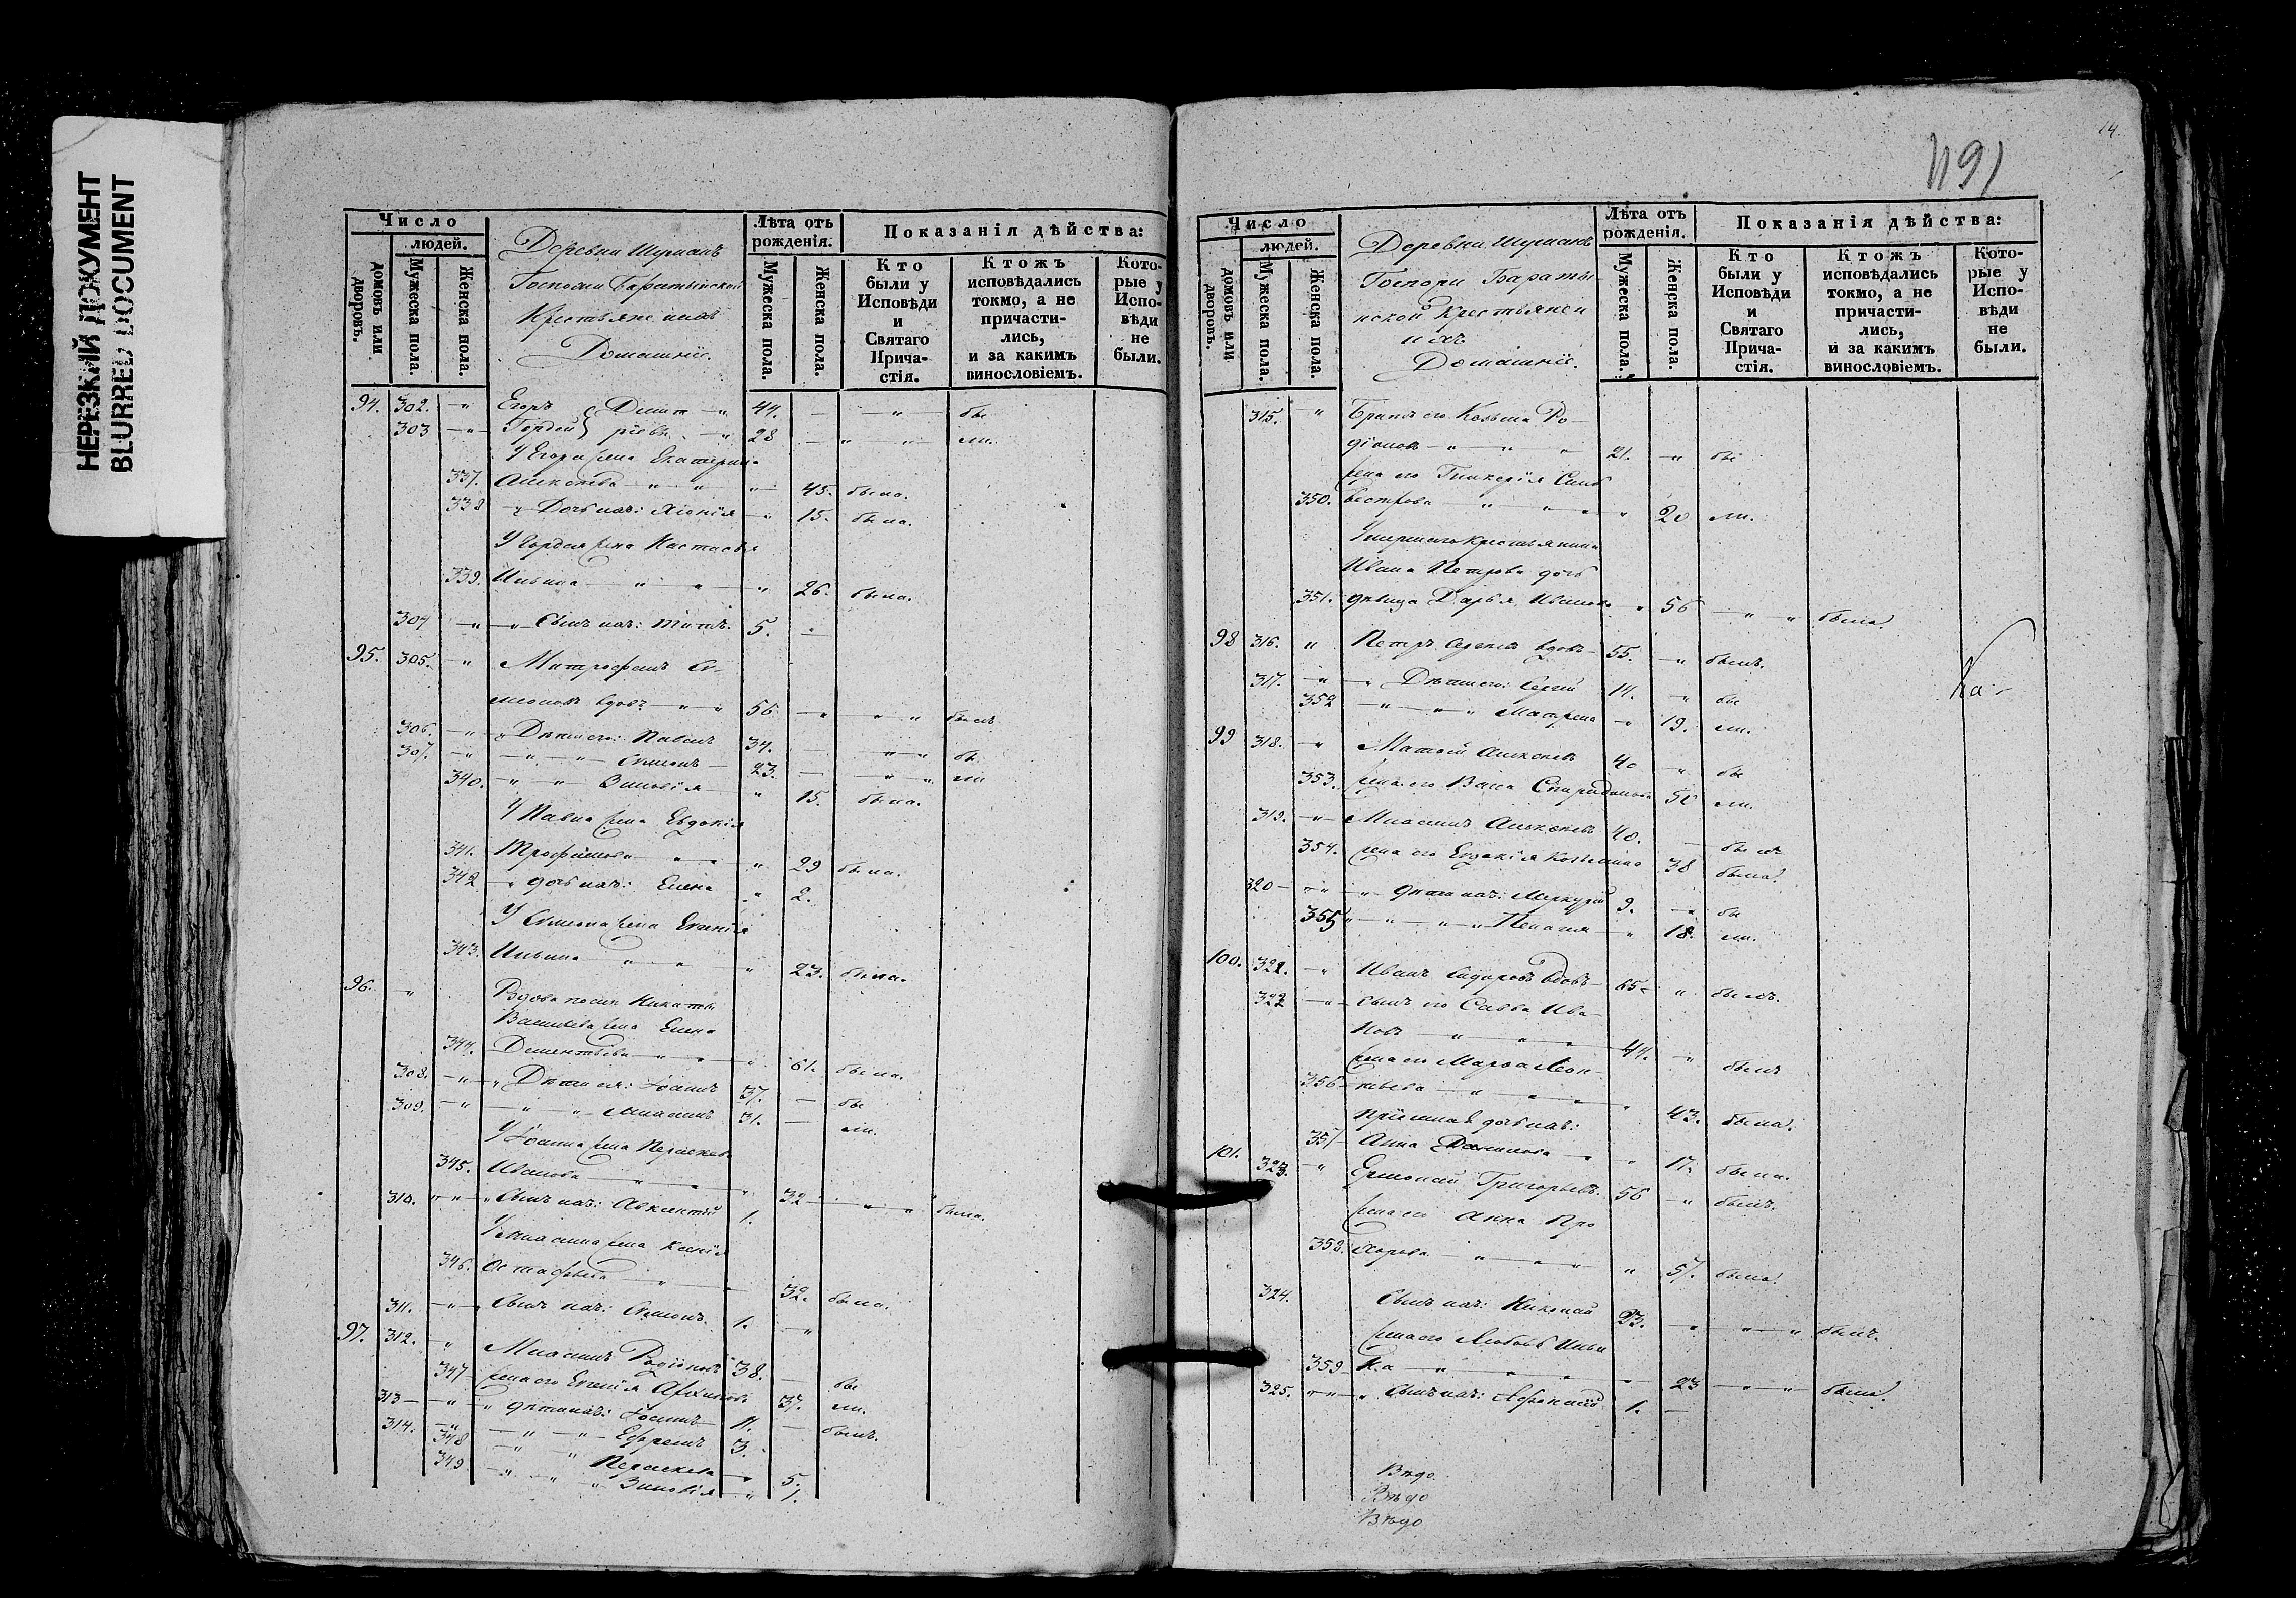 НЕРЕЗКИЙ ДОКУМЕНТ
BLURRED DOCUMENT
Число
людей.
домовъ или дворовъ.
Мужеска пола.
Женска пола.
Деревни Шуманъ
Госпожи Баратынской
Крестьяне и ихъ
Домашніе.
Лѣта отъ рожденія.
Мужеска пола.
Женска пола.
Показанія дѣйства:
Кто были у Исповѣди и Святаго Прича-стія.
Ктожъ исповѣдались токмо, а не причасти-лись, и за какимъ винословіемъ.
Кото-рые у Испо-вѣди не были.
94. 302. Егоръ Дмит 44. бы
303 Гордей ріевы 28 ли.
У Егора жена Екатерина
337. Алексѣева 45. была.
338 Дочь ихъ: Хіонія 15. была.
У Гордея жена Настасья
339. Ильина 26. была.
304 Сынъ ихъ: Титъ. 5.
95. 305. Митрофанъ Си-
меоновъ вдовъ 56 былъ
306. Дѣти его: Павелъ 34. бы
307. Симеонъ 23. ли
340. Зиновія 15. была.
У Павла жена Евдокія
341. Трофимова 29 была.
342 дочь ихъ: Елена 2.
У Симеона жена Евгенія
343. Ильина 23. была.
96. Вдова послѣ Никиты
Васильева жена Елена
344. Дементьева 61. была.
308. Дѣти ея: Іоаннъ 37. бы
309. 31. ли.
У Іоанна жена Параскева
345. Иванова 32 была.
310. Сынъ ихъ: Авксентій 1.
жена Ксенія
346. Остафьева 32. была.
311. Сынъ ихъ: Симеонъ. 1.
97. 312. Родіоновъ 38. бы
347 жена его Евгенія Архипова 37. ли.
313 дѣти ихъ: Іоаннъ 11. былъ.
314. Ефремъ 3.
348 Параскева 5.
349 Зиновія 1.
14.
1191
Число
людей.
домовъ или дворовъ.
Мужеска пола.
Женска пола.
Деревни Шуманъ
Госпожи Бараты-
нской Крестьяне и
ихъ
Домашніе.
Лѣта отъ рожденія.
Мужеска пола.
Женска пола.
Показанія дѣйства:
Кто были у Исповѣди и Святаго Прича-стія.
Ктожъ исповѣдались токмо, а не причасти-лись, и за какимъ винословіемъ.
Кото-рые у Испо-вѣди не были.
315. Братъ его Козьма Ро-
діоновъ 21. бы
жена его Гликерія Силь
350. вестрова 20 ли.
Умершаго крестьянина
Ивана Петрова дочь
351. дѣвица Дарья Иванова 56 была.
98 316. Петръ Сергѣевъ вдовъ 55. былъ.
317. Дѣти его: Сергій 14. бы
352 Матрена 19. ли.
99 318. Матѳей Алексѣевъ 40 бы
353. жена его Васса Спиридонова 50 ли.
319. Алексѣевъ 40. былъ
354. жена его Евдокія Козьмина 38 была.
320 дѣти ихъ: Меркурій 9. бы
355 Пелагея 18. ли.
100. 321. Иванъ Сидоровъ вдовъ 65 былъ.
322 сынъ его Савва Ива-
новъ 44. былъ
жена его Марѳа Леон-
356 тьева 43. была.
пріемная дочь ихъ:
357 Анна 17. была.
101. 323. Ермолай Григорьевъ. 56 былъ.
жена его Анна Про
358. хорова 57. была.
324. Сынъ ихъ: Николай 23. былъ.
жена его Любовь Ильи
359 на 23 была.
325. Сынъ ихъ: Аѳанасій 1.
Вѣдо
Вѣдо
Вѣдо